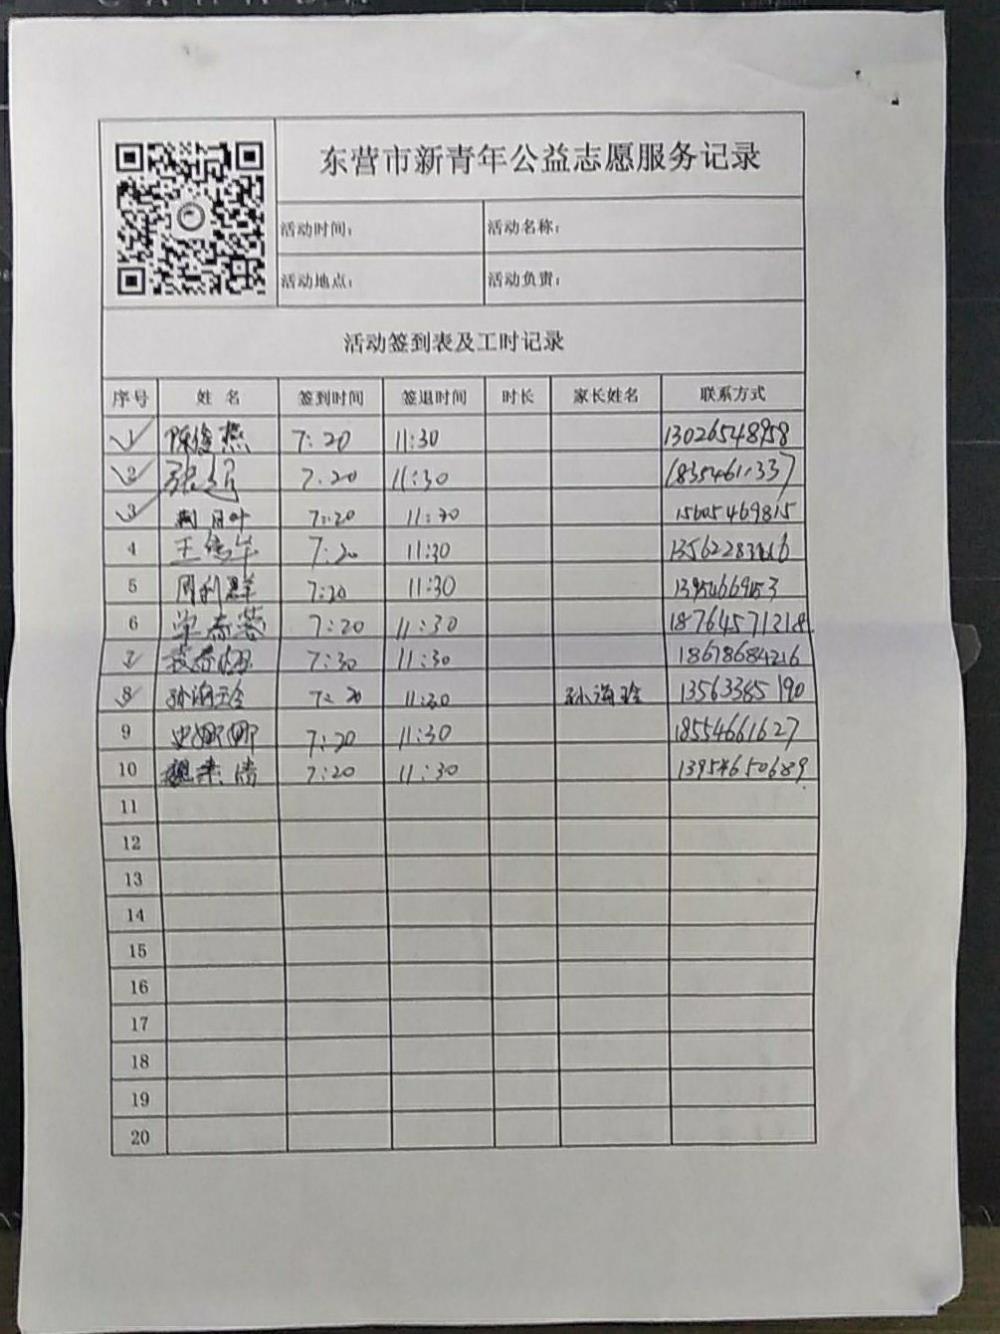 东营市新青年公益志愿服务记录
活动时间： 活动名称：
活动地点： 活动负责：
活动签到表及工时记录
序号 姓名 签到时间 签退时间 时长 家长姓名 联系方式
1 陈俊燕 7:20 11:30 13026548958
2 张超 7:20 11:30 18354611337
3 7:20 11:30 15605469815
4 7:20 11:30
5 周利群 7:20 11:30
6 7:20 11:30 18764571218
7 7:30 11:30 18678684216
8 孙海玲 7:20 11:30 孙海玲 13563385190
9 史娜娜 7:20 11:30 18554661627
10 7:20 11:30 13954650689
11
12
13
14
15
16
17
18
19
20